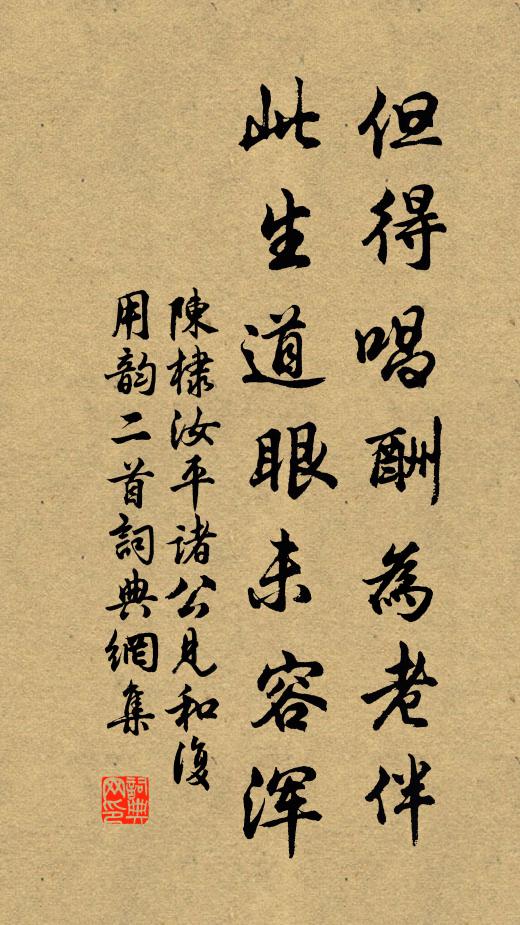 但得唱酬為老伴
此生道眼未容浑
陳棣汝平諸公見和復
用韵二首詞典網集
詞典网印